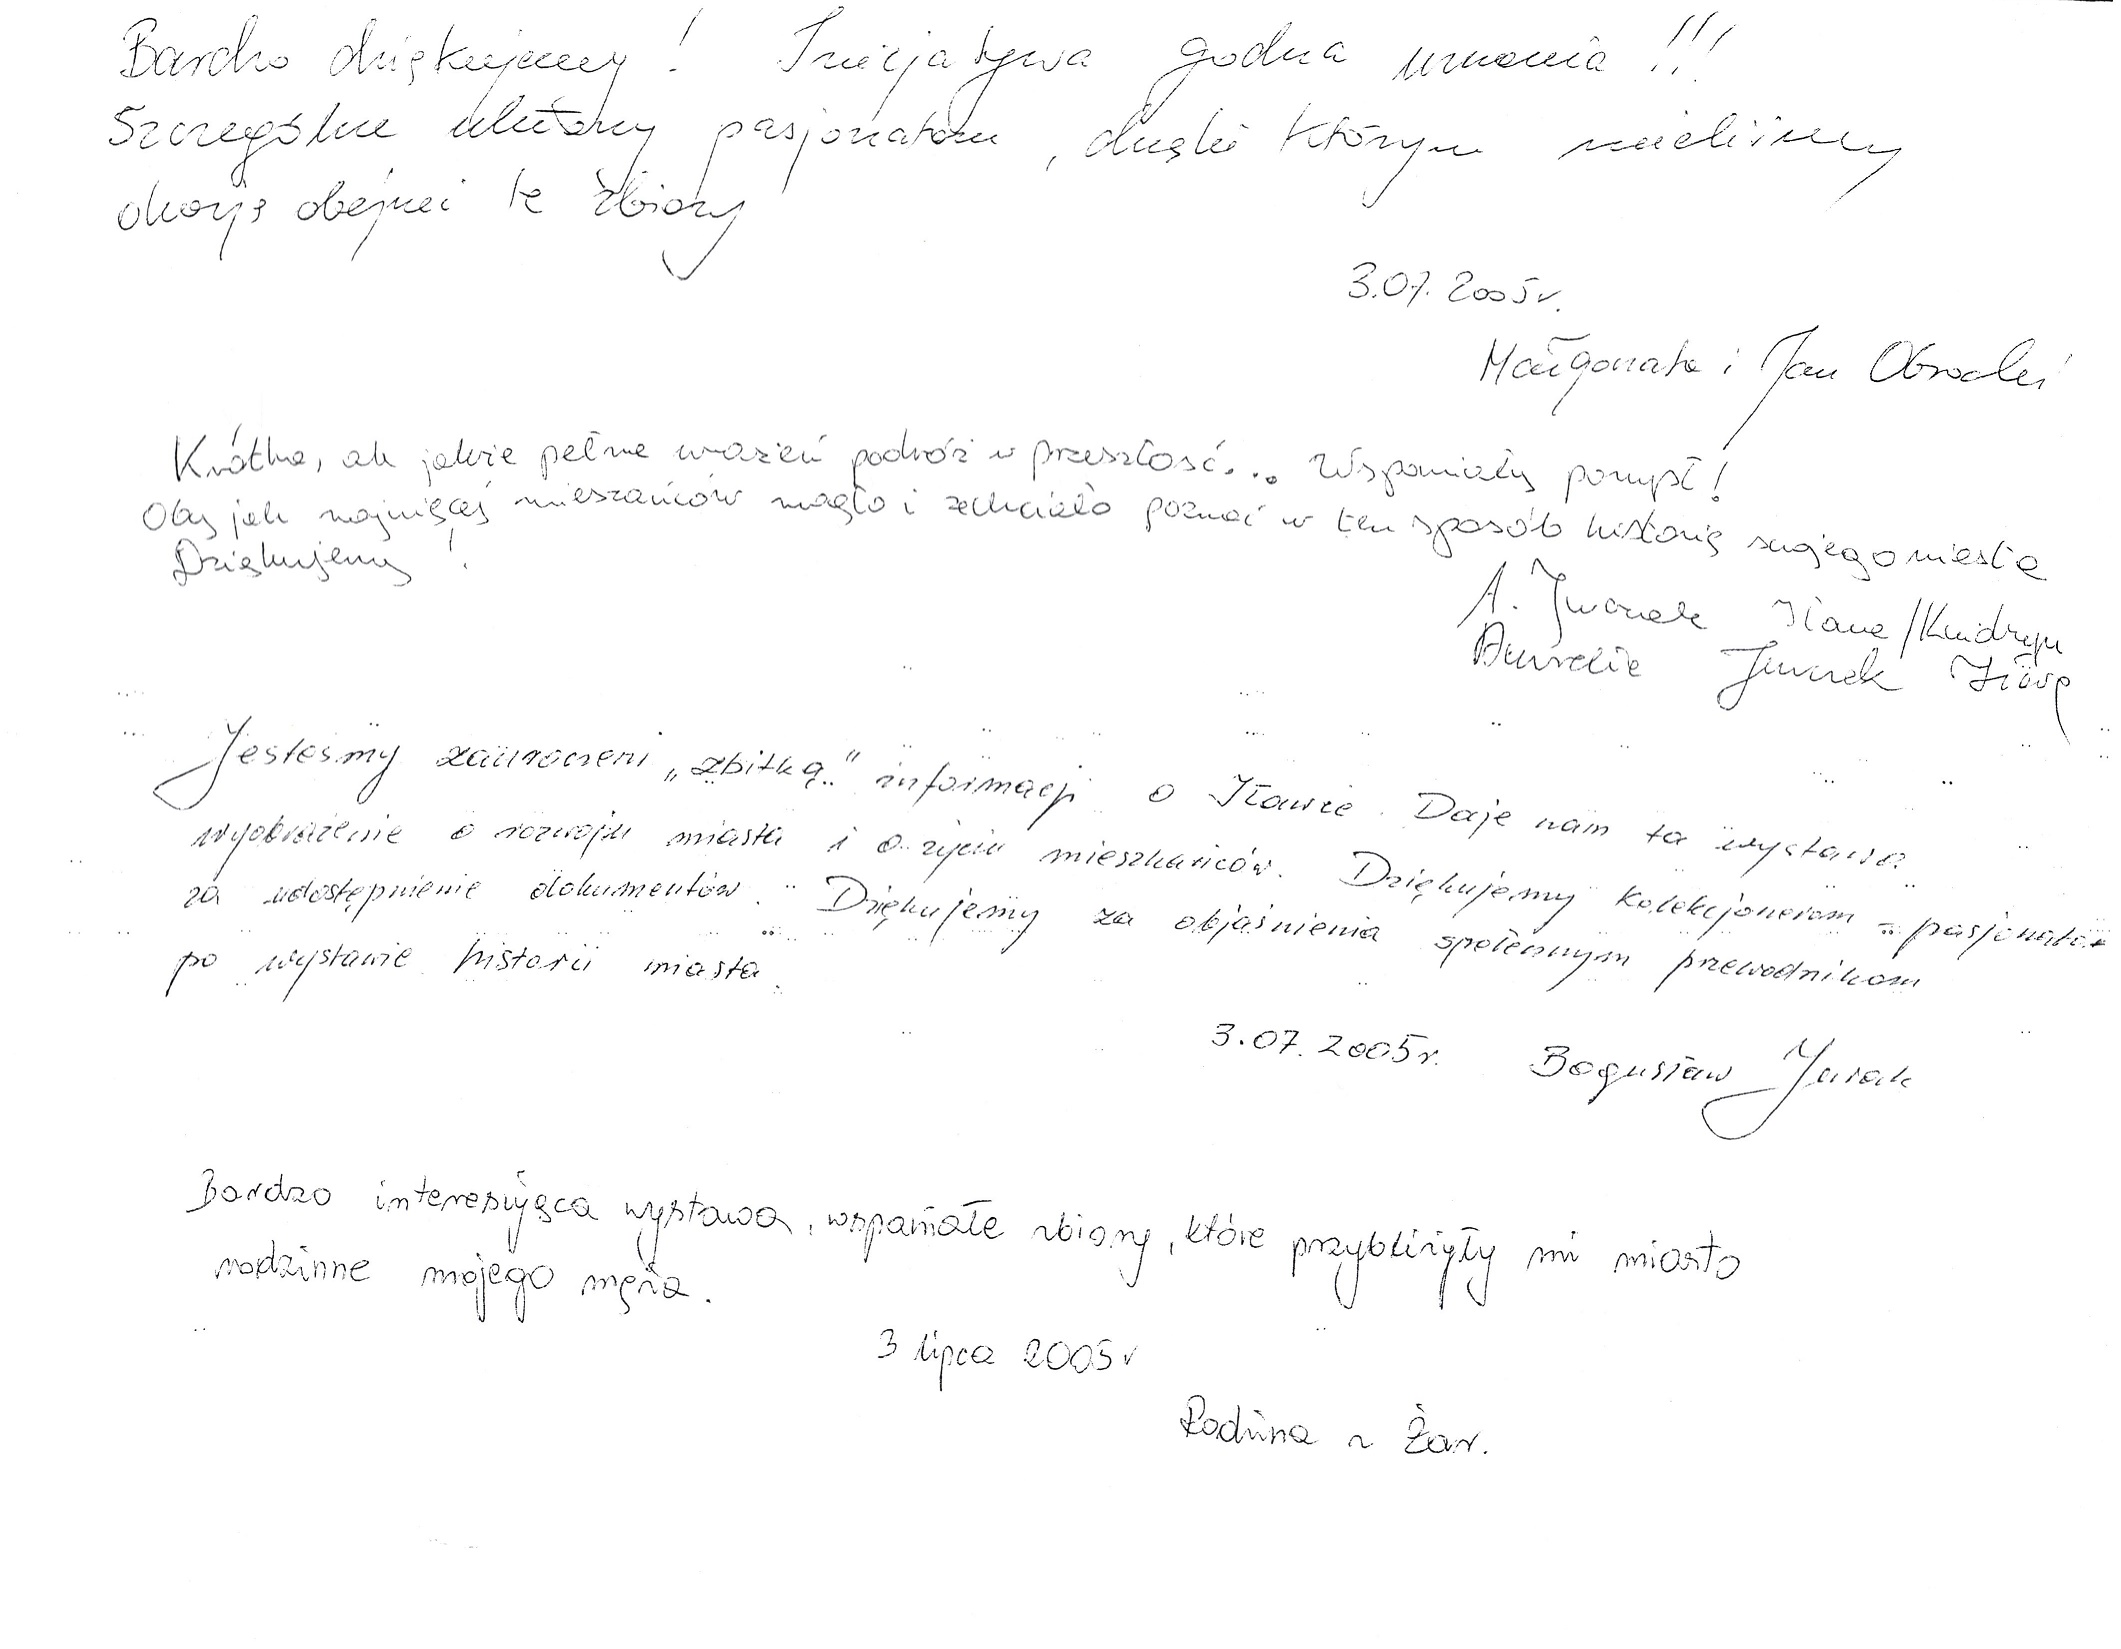 Bardzo dziękujemy! Inicjatywa godna uznania!!!
Szczególne ukłony pasjonatom, dzięki którym mieliśmy
okazję obejrzeć te zbiory
3.07.2005r.
Małgorzata i Jan Obrodzki
Krótka, ale jakże pełna wrażeń podróż w przeszłość... Wspaniały pomysł!
Oby jak najwięcej mieszkańców mogło i zechciało poznać w ten sposób historię swojego miasta
Dziękujemy!
A. Jurczak Iława/Kwidzyn
Aurelia Iława
Jesteśmy zauroczeni „zbitką" informacji o Iławie. Daje nam ta wystawa
wyobrażenie o rozwoju miasta i o życiu mieszkańców. Dziękujemy kolekcjonerom - pasjonatom
za udostępnienie dokumentów. Dziękujemy za objaśnienia społecznym przewodnikom
po wystawie historii miasta.
3.07.2005r. Bogusław
Bardzo interesująca wystawa, wspaniałe zbiory, które przybliżyły mi miasto
rodzinne mojego męża.
3 lipca 2005r
Rodzina z Żar.